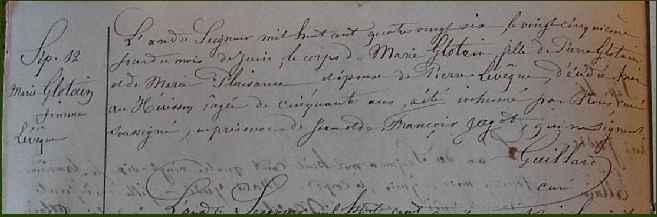 Sép. 12
Marie Glotain
femme
Lévêque
L'an du Seigneur mil huit cent quatre vingt six le vingt cinquième
jour du mois de Juin, le corps de Marie Glotain, fille de Pierre Glotain
et de Marie Plaisance épouse de Pierre Lévêque, décédée hier
au Hérisson, âgée de cinquante ans, a été inhumé par Nous curé
soussigné, en présence de Jean et de François Jagot, qui ne signent
Guillard
curé
L'an du Seigneur mil huit cent